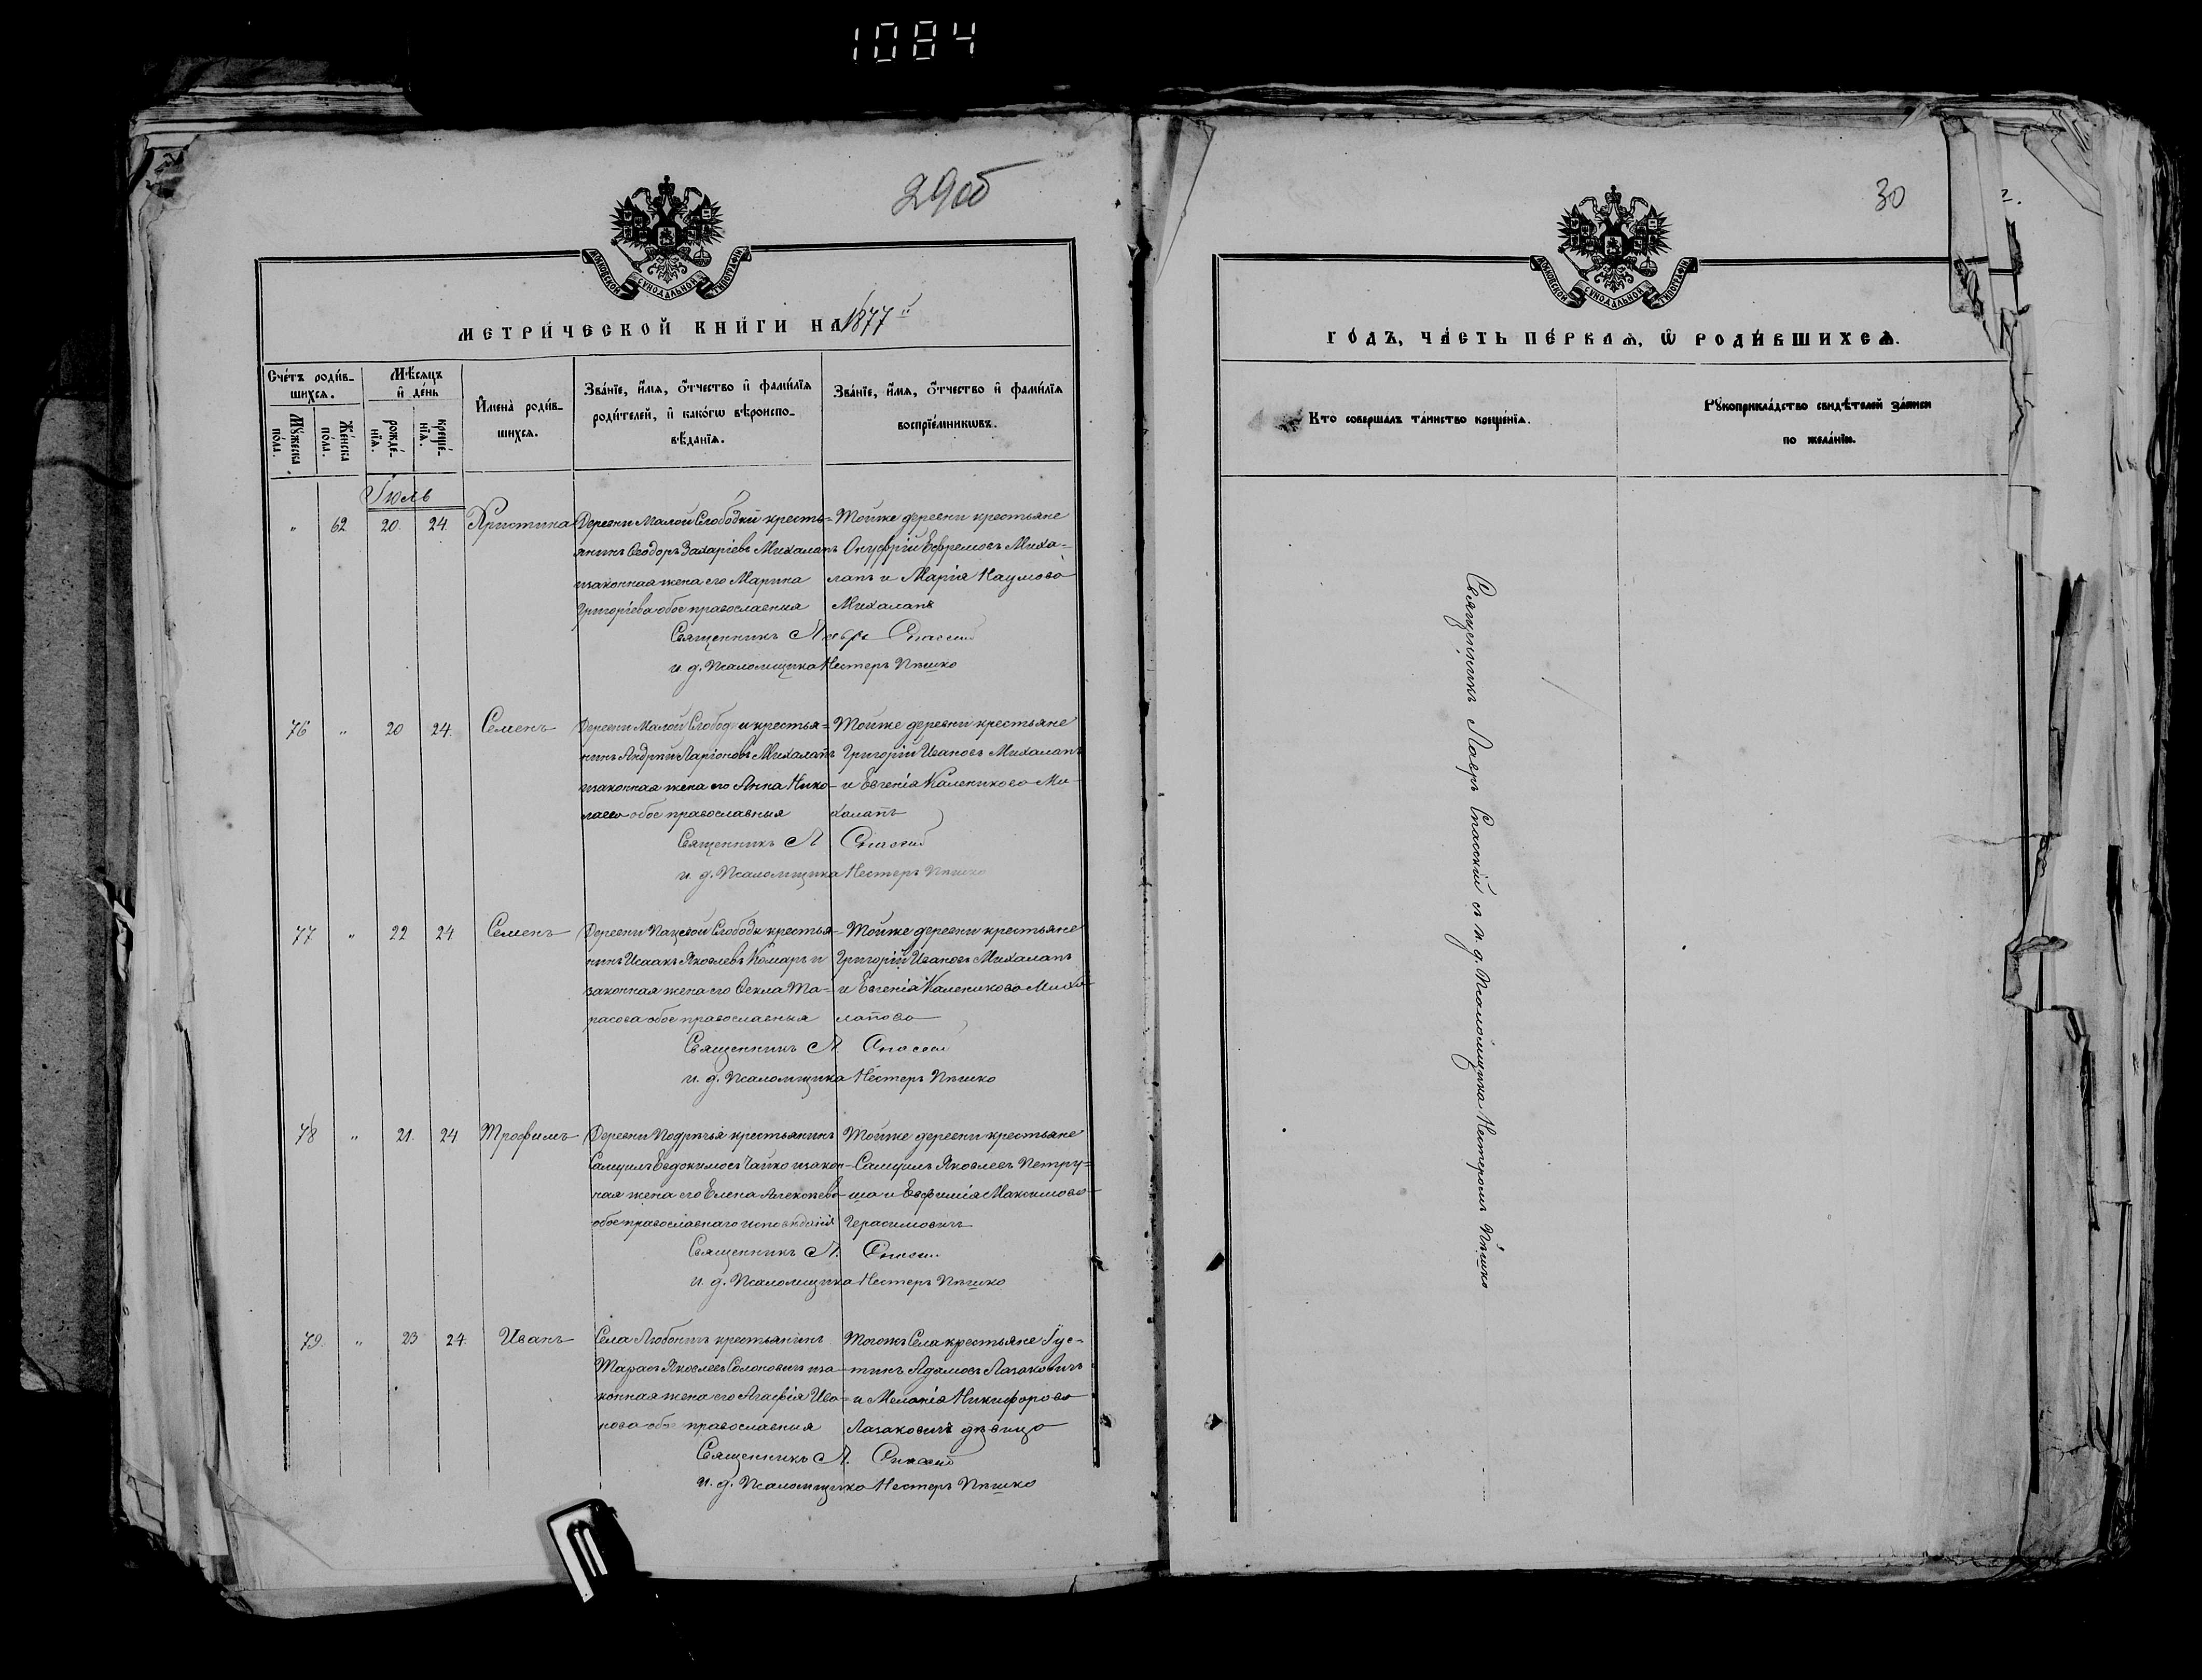 1084
29об
МОСКОВСКОЙ СѴНОДАЛЬНОЙ ТИПОГРАФІИ
МЕТРИЧЕСКОЙ КНИГИ НА 1877 й
Сче́тъ роди́вшихся.
Му́жеска по́ла.
Же́нска по́ла.
Мѣ́сяцъ и҆ де́нь
рожде́нїя.
креще́нїя.
И҆мена̀ роди́вшихся.
Зва́нїе, и҆́мя, ѻ҆́тчество и҆ фами́лїя
роди́телей, и҆ како́гѡ вѣроиспо-
вѣ́данїя.
Зва́нїе, и҆́мя, ѻ҆́тчество и҆ фами́лїя
воспрїе́мникѡвъ.
Іюль
" 62 20. 24. Христина
Деревни Малой Слободки кресть-
янинъ Ѳеодоръ Захаріевъ Михалапъ
изаконная жена его Марина
Григоріева обое православныя
Тойже деревни крестьяне
Онуфрій Ефремовъ Миха-
лапъ и Марія Наумова
Михалапъ
Священникъ Лавръ Спасскій
и. д. Псаломщика Нестеръ Пѣшко
76 " 20 24. Семенъ
Деревни Малой Слободки крестья-
нинъ Андрей Ларіоновъ Михалапъ
изаконная жена его Анна Нико-
лаева обое православныя
Тойже деревни крестьяне
Григорій Ивановъ Михалапъ
и Евгенія Каленикова Ми-
халапъ
Священникъ Л. Спасскій
и. д. Псаломщика Нестеръ Пѣшко
77 " 22 24 Семенъ
Деревни Слободы крестья-
нинъ Исаакъ Яковлевъ Комаръ и
законная жена его Ѳекла Та-
расова обое православныя
Тойже деревни крестьяне
Григорій Ивановъ Михалапъ
и Евгенія Каленикова Миха-
лапова
Священникъ Л. Спасскій
и. д. Псаломщика Нестеръ Пѣшко
78 " 21. 24 Трофимъ
Деревни Подрѣчья крестьянинъ
Самуилъ Евдокимовъ Чайко изакон-
ная жена его Елена Алексеева
обое православнаго исповѣданія
Тойже деревни крестьяне
Самуилъ Яковлевъ Петру-
ша и Евфимія Максимова
Герасимовичъ
Священникъ Л. Спасскій
и. д. Псаломщика Нестеръ Пѣшко
79. " 23 24. Иванъ
Села Любоничъ крестьянинъ
Тарасъ Яковлевъ Солоновичъ иза-
конная жена его Агафія Ива-
нова обое православныя
Тогожъ Села крестьяне Іус-
тинъ Адамовъ Лазаковичъ
и Меланія Никифорова
Лазаковичъ дѣвица
Священникъ Л. Спасскій
и. д. Псаломщика Нестеръ Пѣшко
30
МОСКОВСКОЙ СѴНОДАЛЬНОЙ ТИПОГРАФІИ
ГО́ДЪ, ЧА́СТЬ ПЕ́РВАЯ, Ѡ҆ РОДИ́ВШИХСЯ.
Кто̀ соверша́лъ та́инство креще́нїя.
Рꙋкоприкла́дство свидѣ́телей за́писи
по жела́нїю.
Священникъ Лавръ Спасскій съ и. д. Псаломщика Нестеромъ Пѣшко